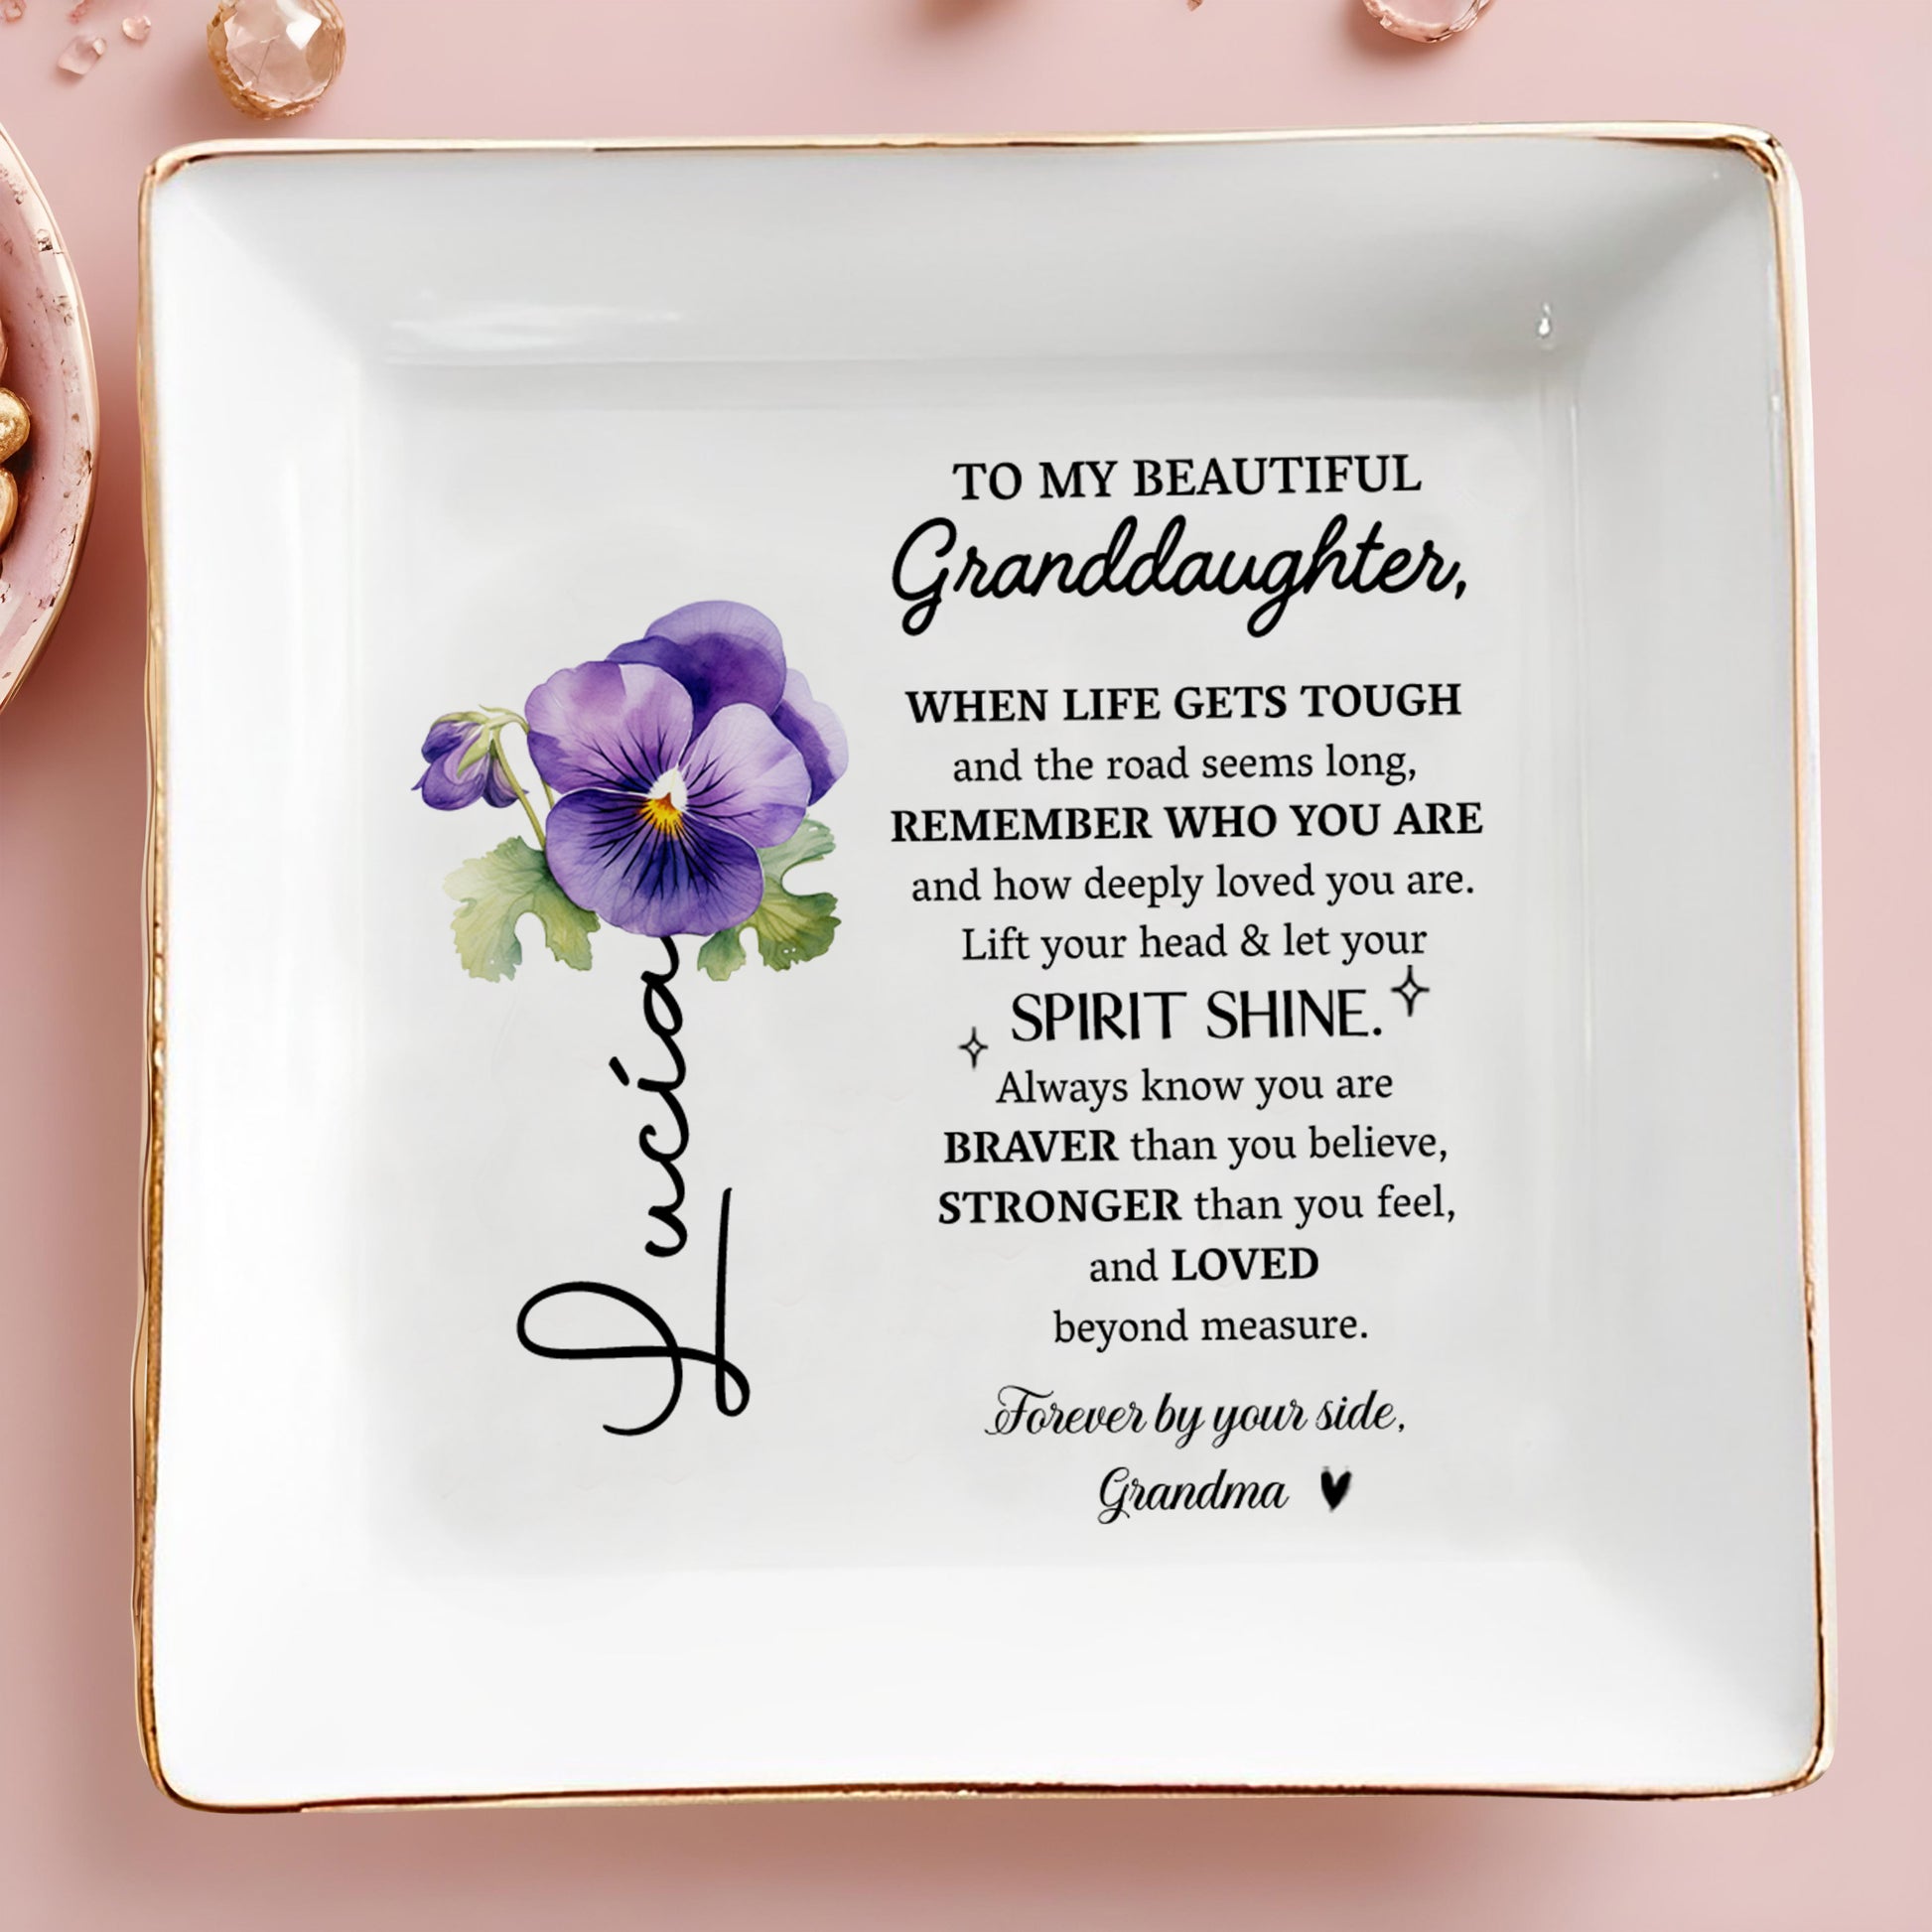 TO MY BEAUTIFUL
Granddaughter,
WHEN LIFE GETS TOUGH
and the road seems long,
REMEMBER WHO YOU ARE
and how deeply loved you are.
Lift your head & let your
SPIRIT SHINE.
Always know you are
BRAVER than you believe,
STRONGER than you feel,
and LOVED
beyond measure.
Forever by your side,
Grandma
Lucía